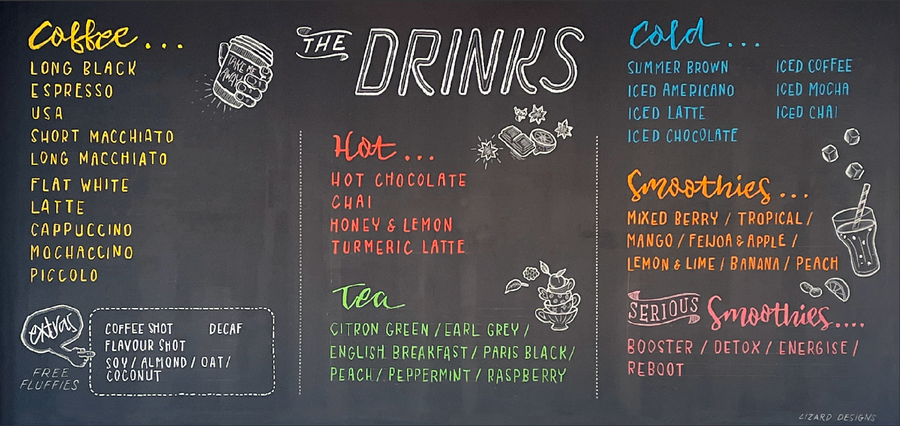 Coffee...
LONG BLACK
ESPRESSO
USA
SHORT MACCHIATO
LONG MACCHIATO
FLAT WHITE
LATTE
CAPPUCCINO
MOCHACCINO
PICCOLO
extras
COFFEE SHOT DECAF
FLAVOUR SHOT
SOY/ALMOND/OAT/
COCONUT
FREE
FLUFFIES
TAKE ME
AWAY
THE DRINKS
Hot...
HOT CHOCOLATE
CHAI
HONEY & LEMON
TURMERIC LATTE
Tea
CITRON GREEN / EARL GREY /
ENGLISH BREAKFAST / PARIS BLACK/
PEACH / PEPPERMINT / RASPBERRY
Cold...
SUMMER BROWN ICED COFFEE
ICED AMERICANO ICED MOCHA
ICED LATTE ICED CHAI
ICED CHOCOLATE
Smoothies...
MIXED BERRY / TROPICAL /
MANGO / FEIJOA & APPLE /
LEMON & LIME / BANANA / PEACH
SERIOUS Smoothies....
BOOSTER / DETOX / ENERGISE /
REBOOT
LIZARD DESIGNS